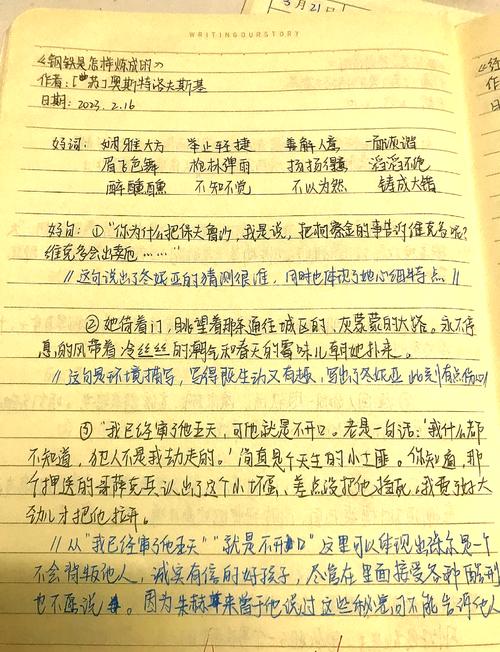 3月21日
WRITINGOURSTORY
《钢铁是怎样炼成的》
作者:[苏]奥斯特洛夫斯基
日期:2023.2.16
好词: 娴雅大方 举止轻捷 善解人意 一面诙谐
眉飞色舞 枪林弹雨 扬扬得意 滔滔不绝
醉醺醺 不知不觉 不以为然 铸成大错
好句:①"你为什么把保夫鲁沙,我是说,把柯察金的事告诉维克多呢?
维克多会出卖他……"
//这句说出了冬妮亚的猜测很准,同时也体现了她心细特点//
②她倚着门,眺望着那条通往城区的灰蒙蒙的大路。永不停
息的风带着冷丝丝的潮气和春天的霉味儿朝她扑来。
//这句是环境描写,写得既生动又有趣,写出了冬妮亚此刻有点伤心
③"我已经审了他五天,可他就是不开口。老是一句话:'我什么都
不知道,犯人不是我劫走的。'简直是个天生的小土匪。你知道,那
个押送的哥萨克兵认出了这个小坏蛋,差点没把他掐死,我费了好大
劲儿才把他拉开。
//从"我已经审了他五天""就是不开口"这里可以体现出保尔是一个
不会背叛他人,诚实有信的好孩子,尽管在里面接受各种酷刑
也不愿说。因为朱赫来曾于他说过这些秘密可不能告诉他人